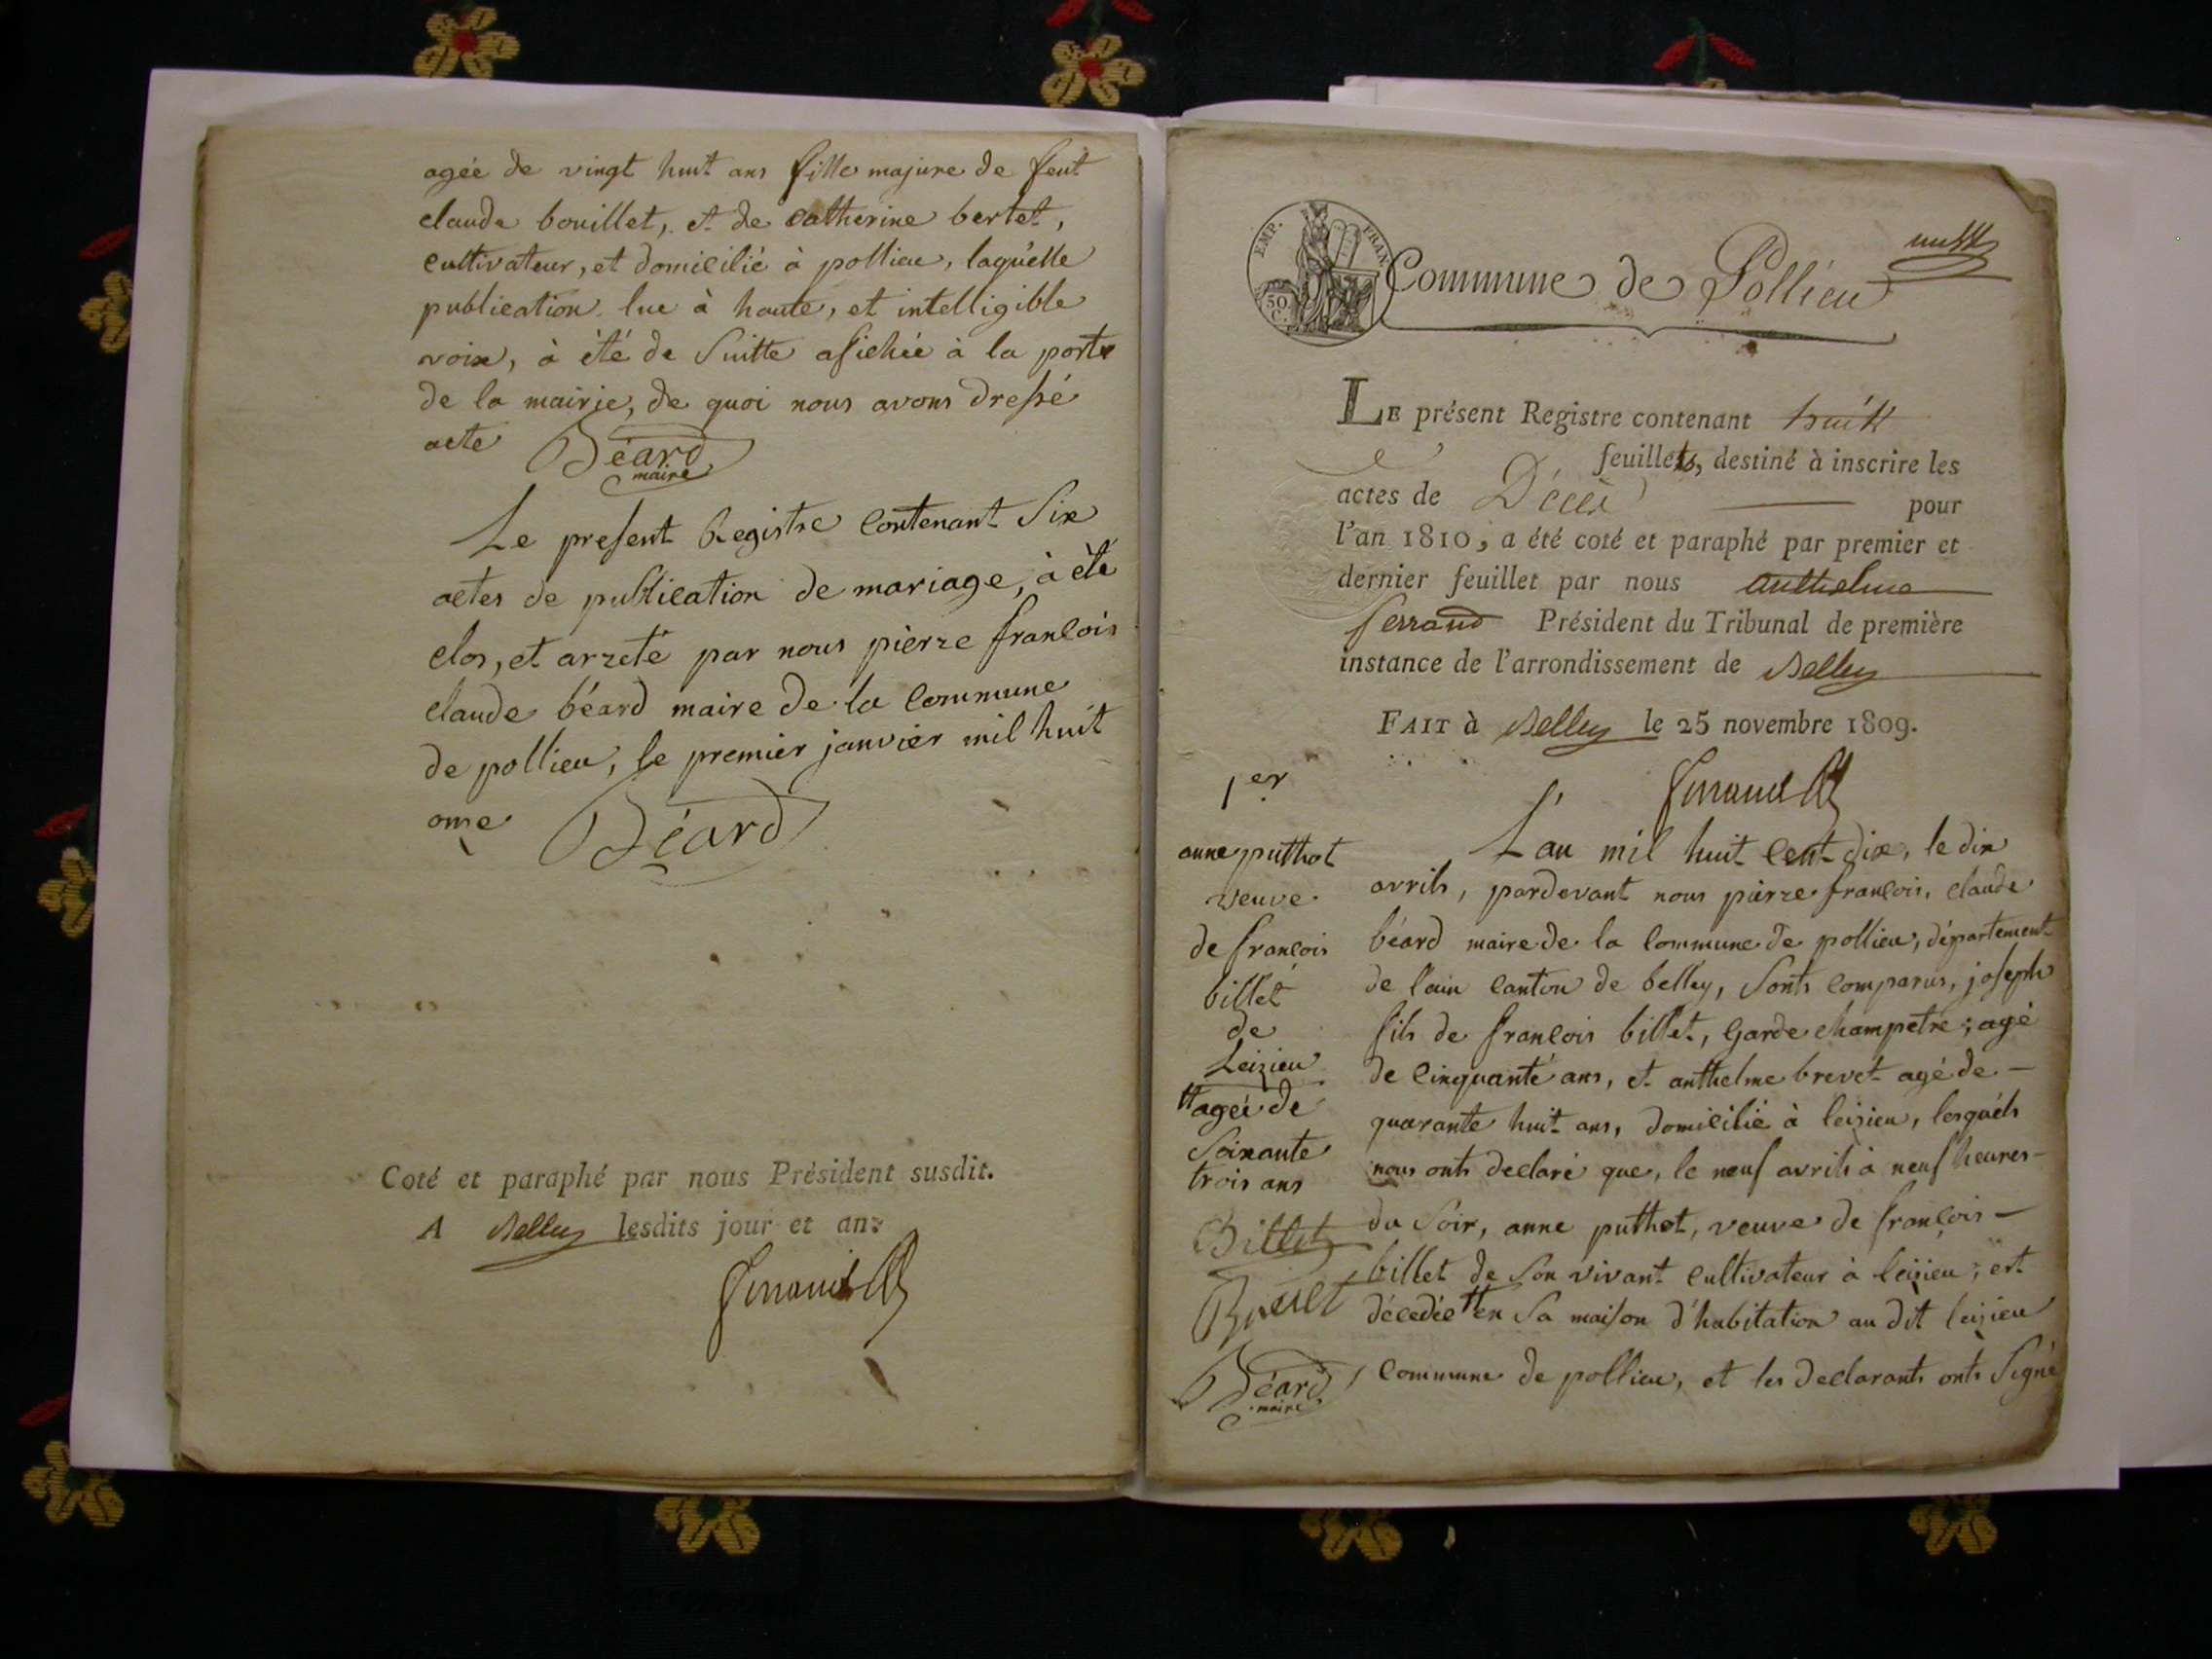 agée de vingt huit ans fille majure de feut
claude bouillet, et de catherine bertet,
cultivateur, et domicilié à pollieu, laquélle
publication lue à haute, et intelligible
voix, à été de Suitte afichée à la porte
de la mairie, de quoi nous avons dressé
acte Béard
maire
Le present Registre contenant Six
actes de publication de mariage, à été
clos, et arreté par nous pierre francois
claude béard maire de la commune
de pollieu, le premier janvier mil huit
onze Béard
Coté et paraphé par nous Président susdit.
A Belley lesdits jour et an.
EMP. FRAN.
50
C.
Commune de Pollieu
LE présent Registre contenant huit
feuillets, destiné à inscrire les
actes de Décès pour
l'an 1810, a été coté et paraphé par premier et
dernier feuillet par nous Anthelme
ferrand Président du Tribunal de première
instance de l'arrondissement de Belley
FAIT à Belley le 25 novembre 1809.
1er
anne puthot
veuve
de francois
billet
de
Leizieu
++agée de
Soixante
trois ans
Billet
Brevet
Béard
maire
L'an mil huit cent dix, le dix
avrils, pardevant nous pierre francois, claude
béard maire de la commune de pollieu, département
de l'ain canton de belley, Sonts comparus, joseph
fils de francois billet, Garde champetre; agé
de cinquante ans, et anthelme brevet agé de -
quarante huit ans, domicilié à leizieu, lesquéls
nous onts declaré que, le neuf avrils à neuf heures -
du Soir, anne puthot, veuve de françois -
billet de Son vivant cultivateur à leizieu, est
décedée ++ en Sa maison d'habitation au dit leizieu
commune de pollieu, et les declarants onts Signé